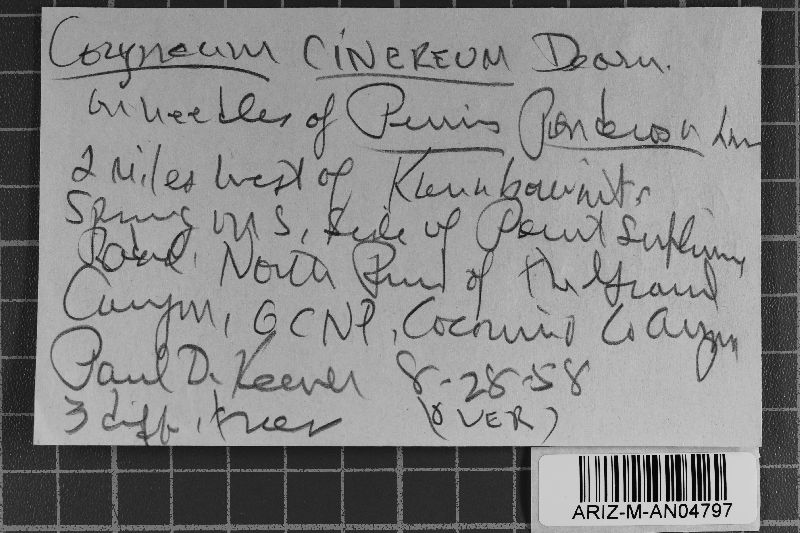 Coryneum CINEREUM Dearn.
on needles of Pinus Ponderosa
2 miles west of Kanabownits
Spring on S. side of Point Sublime
Road. North Rim of the Grand
Canyon, GCNP, Coconino Co
Paul D. Keener 8-28-58
3 diff. trees (OVER)
ARIZ-M-AN04797